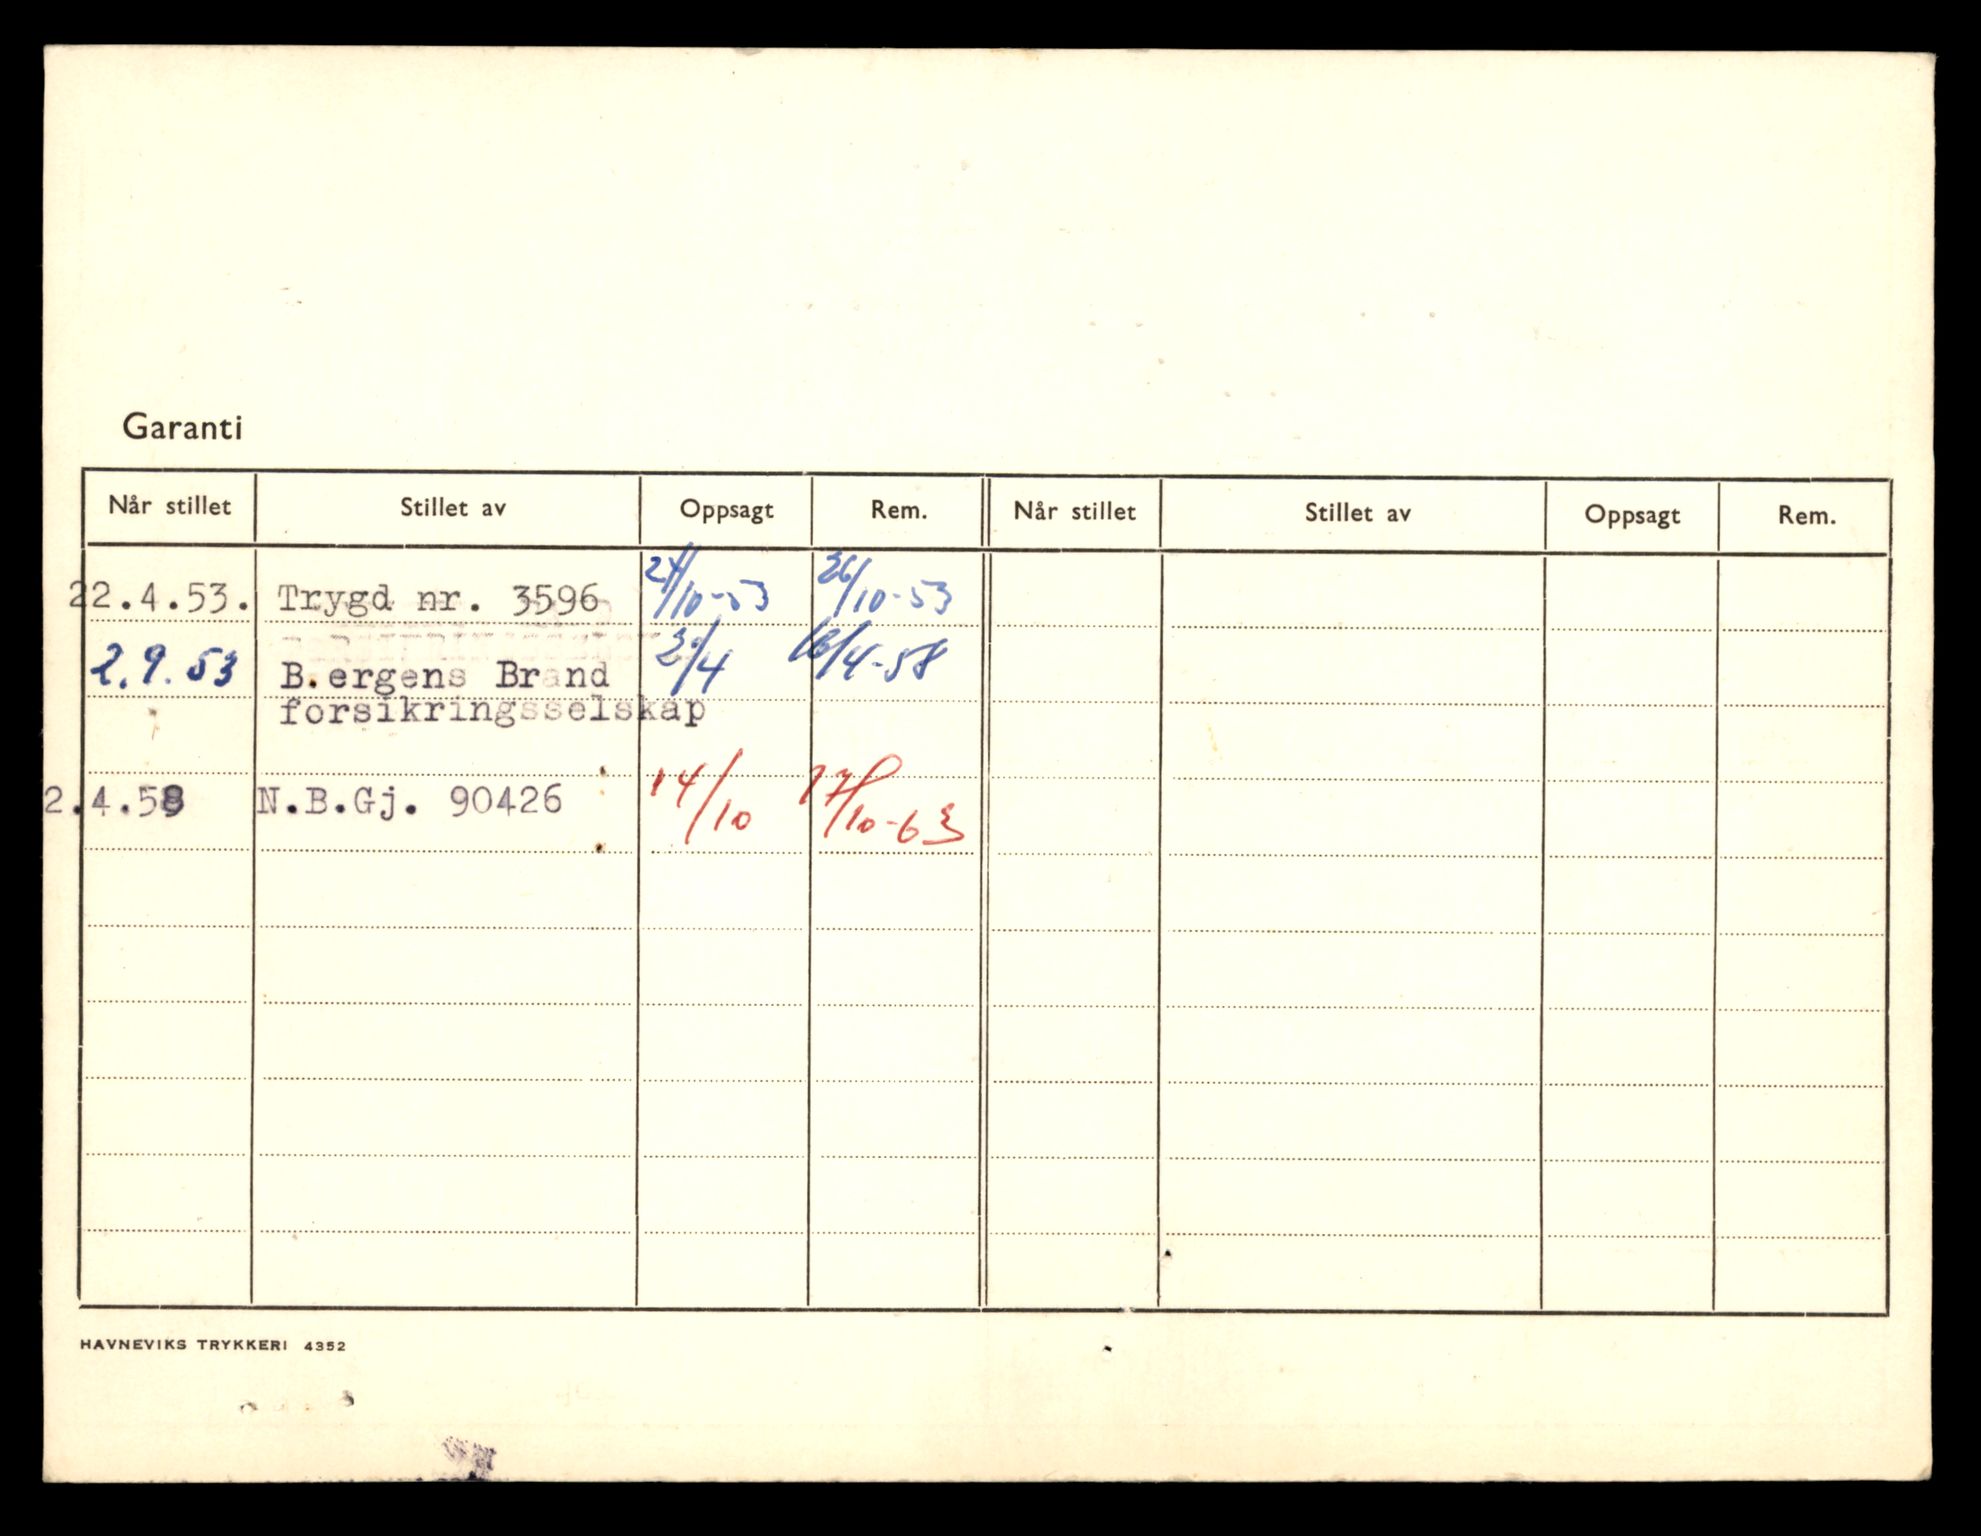 Garanti
Når stillet Stillet av Oppsagt Rem. Når stillet Stillet av Oppsagt Rem.
22.4.53. Trygd nr. 3596 24/10-53 26/10-53
2.9.53 B.ergens Brand /4 /4-58
forsikringsselskap
2.4.58 N.B.Gj. 90426 14/10 17/10-63
HAVNEVIKS TRYKKERI 4352